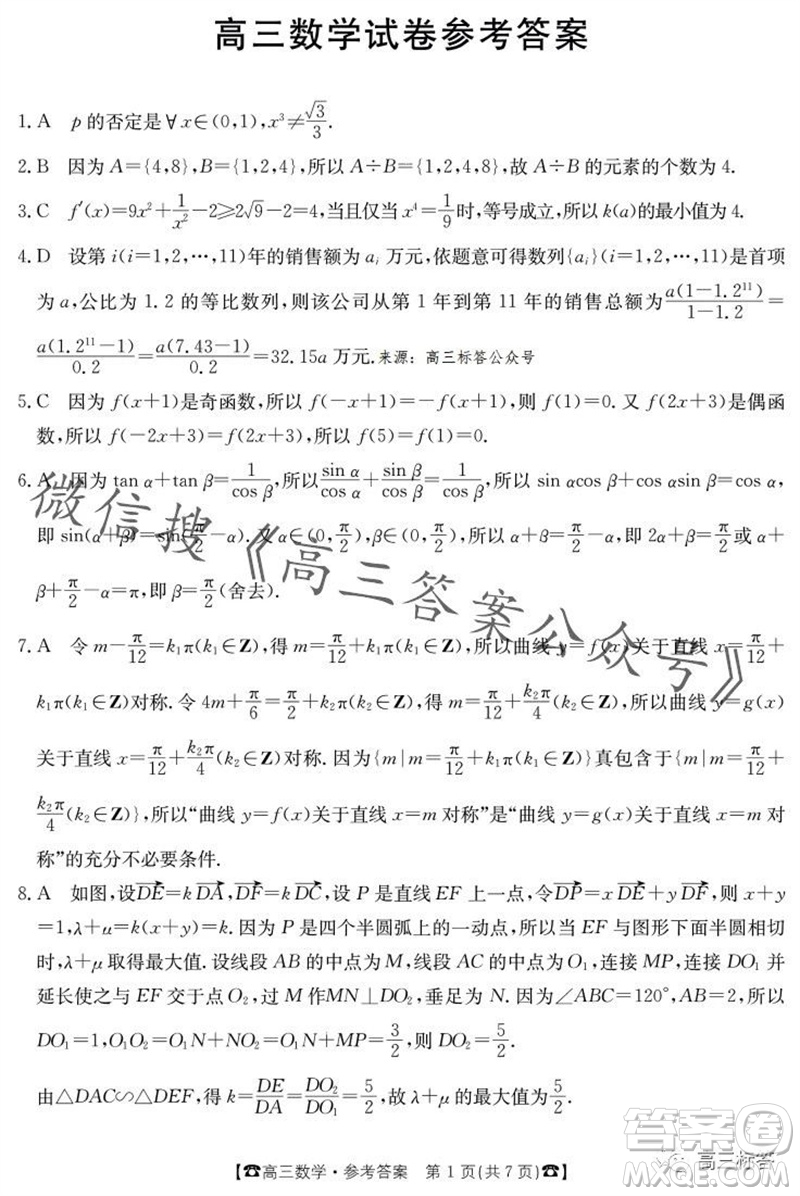 高三数学试卷参考答案
1. A　p 的否定是 ∀x∈(0,1),x³≠√3/3.
2. B　因为 A={4,8},B={1,2,4},所以 A÷B={1,2,4,8},故 A÷B 的元素的个数为 4.
3. C　f′(x)=9x²+1/x²-2≥2√9-2=4,当且仅当 x⁴=1/9时,等号成立,所以 k(a)的最小值为 4.
4. D　设第 i(i=1,2,⋯,11)年的销售额为 aᵢ 万元,依题意可得数列{aᵢ}(i=1,2,⋯,11)是首项
为 a,公比为 1.2 的等比数列,则该公司从第 1 年到第 11 年的销售总额为a(1-1.2¹¹)/(1-1.2)=
a(1.2¹¹-1)/0.2=a(7.43-1)/0.2=32.15a 万元.来源：高三标答公众号
5. C　因为 f(x+1)是奇函数,所以 f(-x+1)=-f(x+1),则 f(1)=0.又 f(2x+3)是偶函
数,所以 f(-2x+3)=f(2x+3),所以 f(5)=f(1)=0.
6. A　因为 tan α+tan β=1/cos β,所以sin α/cos α+sin β/cos β=1/cos β,所以 sin αcos β+cos αsin β=cos α,
即 sin(α+β)=sin(π/2-α).又 α∈(0,π/2),β∈(0,π/2),所以 α+β=π/2-α,即 2α+β=π/2或 α+
β+π/2-α=π,即 β=π/2(舍去).
7. A　令 m-π/12=k₁π(k₁∈Z),得 m=π/12+k₁π(k₁∈Z),所以曲线 y=f(x)关于直线 x=π/12+
k₁π(k₁∈Z)对称.令 4m+π/6=π/2+k₂π(k₂∈Z),得 m=π/12+k₂π/4(k₂∈Z),所以曲线 y=g(x)
关于直线 x=π/12+k₂π/4(k₂∈Z)对称.因为{m|m=π/12+k₁π(k₁∈Z)}真包含于{m|m=π/12+
k₂π/4(k₂∈Z)},所以“曲线 y=f(x)关于直线 x=m 对称”是“曲线 y=g(x)关于直线 x=m 对
称”的充分不必要条件.
8. A　如图,设DE→=kDA→,DF→=kDC→,设 P 是直线 EF 上一点,令DP→=xDE→+yDF→,则 x+y
=1,λ+μ=k(x+y)=k.因为 P 是四个半圆弧上的一动点,所以当 EF 与图形下面半圆相切
时,λ+μ 取得最大值.设线段 AB 的中点为 M,线段 AC 的中点为 O₁,连接 MP,连接 DO₁ 并
延长使之与 EF 交于点 O₂,过 M 作MN⊥DO₂,垂足为 N.因为∠ABC=120°,AB=2,所以
DO₁=1,O₁O₂=O₁N+NO₂=O₁N+MP=3/2,则 DO₂=5/2.
由△DAC∽△DEF,得 k=DE/DA=DO₂/DO₁=5/2,故 λ+μ 的最大值为5/2.
微信搜《高三答案公众号》
【☎高三数学·参考答案　第 1 页(共 7 页)☎】
高三标答
答案圈
MXQE.COM